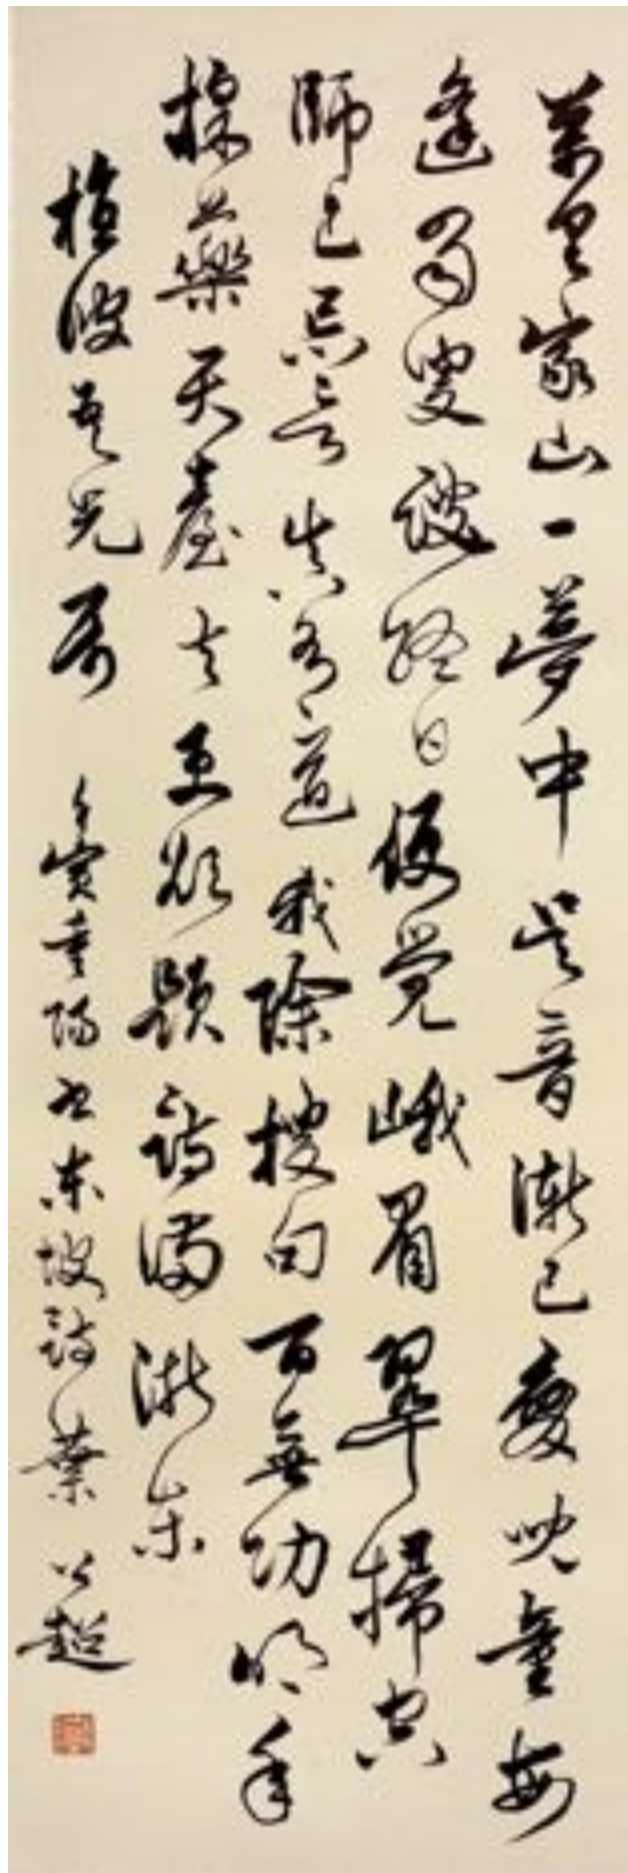 萬里家山一夢中吳音漸已變兒童每
逢蜀叟談終日便覺峨眉翠掃空
師已忘言真有道我除搜句百無功明年
採藥天臺去更欲題詩滿浙東
植波吾兄屬 壬寅重陽書東坡詩葉公超